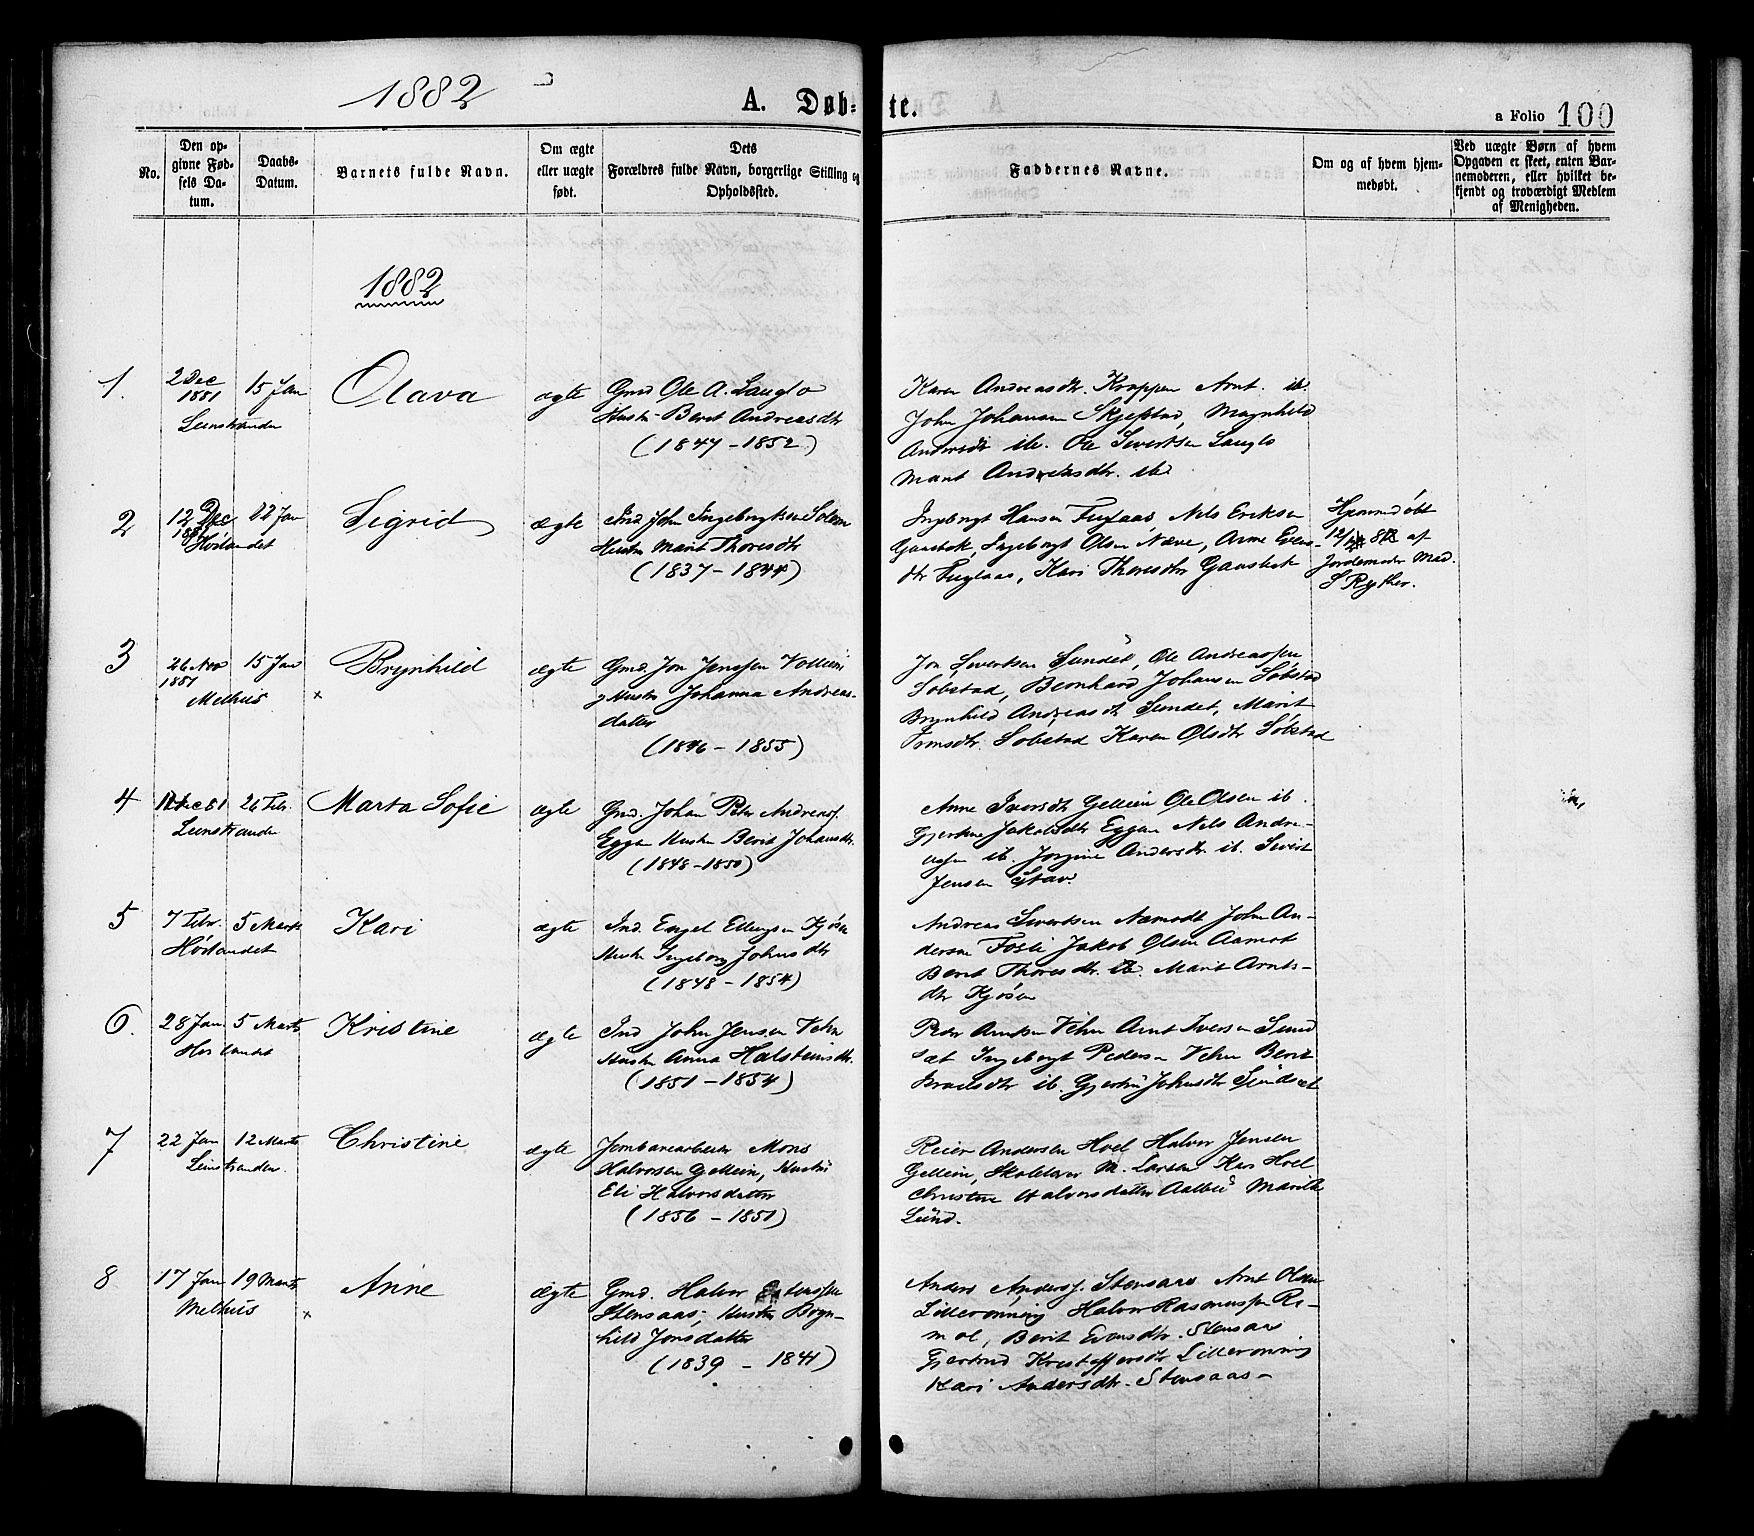 1882
A. Døb-
te.
a Folio 100
No.
Den op-
givne Fød-
sels Da-
tum.
Daabs-
Datum.
Barnets fulde Navn.
Om ægte
eller uægte
født.
Dets
Forældres fulde Navn, borgerlige Stilling og
Opholdssted.
Faddernes Navne.
Om og af hvem hjem-
medøbt.
Ved uægte Børn af hvem
Opgaven er skeet, enten Bar-
nemoderen, eller hvilket be-
kjendt og troværdigt Medlem
af Menigheden.
1882
1.
2 Dec
1881
Leinstranden
15 Jan
Olava
ægte
Gmd Ole A. Lauglo
Hustr. Beret Andreasdtr
(1847 - 1852)
Karen Andreasdtr. Kroppen Arnt ib.
John Johansen Skjefstad, Magnhild
Andersdtr ib. Ole Sivertsen Lauglo
Marit Andreasdtr. ib.
2
12 Dec
Hølandet
22 Jan
Sigrid
ægte
Ind John Ingebrigtsen Solem
Hustr Marit Thoresdtr
(1837 - 1844)
Ingebrigt Hansen Fuglaas Nils Eriksen
Gaasbak, Ingebrigt Olsen Næve, Anne Evens-
dtr Fuglaas, Kari Thoresdtr Gaasbak
Hjemmedøbt
af
Jordemoder Mad.
S Ryther.
3
26 Nov
1881
Melhus
15 Jan
×
Brynhild
ægte
Gmd. Jon Jenssen Vollum
og Hustr Johanna Andreas-
datter
(1846 - 1855)
Jon Sivertsen Sundet, Ole Andreassen
Søbstad, Bernhard Johansen Søbstad
Brynhild Andreasdtr Sundet, Marit
Søbstad Karen Olsdtr Søbstad
4
Dec 81
Leinstranden
26 Febr.
Marta Sofie
ægte
Gmd. Johan Peter Andreass.
Eggen Hustr Berit Johansdtr.
(1848 - 1850)
Anne Iversdtr Gellein Ole Olsen ib.
Gjertine Jakobsdtr Eggen Nils Andre-
asen ib. Jorgine Andersdtr. ib. Sivert
Jensen Stav.
5
7 Febr.
Hølandet
5 Marts
Kari
ægte
Ind. Engel Ellingsen Kjøsen
Hustr Ingeborg Johnsdtr
(1848 - 1854)
Andreas Sivertsen Aamodt John An-
dersen Fosli Jakob Olsen Aamot
Berit Thoresdtr. ib. Marit Arnts-
dtr Kjøsen
6.
28 Jan
Hølandet
5 Marts
Kristine
ægte
Ind John Jensen Vehn
Hustr Anna Halsteinsdtr.
(1851 - 1854)
Peder Arntsen Vehn Arnt Iversen Sund
sæt Ingebrigt Pedersen Vehn Berit
ib. Gjertru Johnsdtr Sundsæt
7
22 Jan
Leinstranden.
12 Marts
Christine
ægte
Jernbanearbeider Mons
Halvorsen Gellein, Hustru
Eli Halvorsdatter
(1856 - 1851)
Reier Andersen Hoel Halvor Jensen
Gellein, Skolelærer M. Larsen Kari Hoel
Christine Halvorsdatter Aalbu Marith
Lund.
8
17 Jan
Melhus
19 Marts
×
Anne
ægte
Gmd. Halvor Estenssen
Stensaas, Hustr Bryn-
hild Jonsdatter
(1839 - 1841)
Anders Anderss. Stensaas Arnt Olsen
Lillerønning Halvor Rasmussen Ri-
mol, Berit Evensdtr. Stensaas
Gjertrud Kristoffersdtr Lillerønning
Kari Andersdtr. Stensaas -